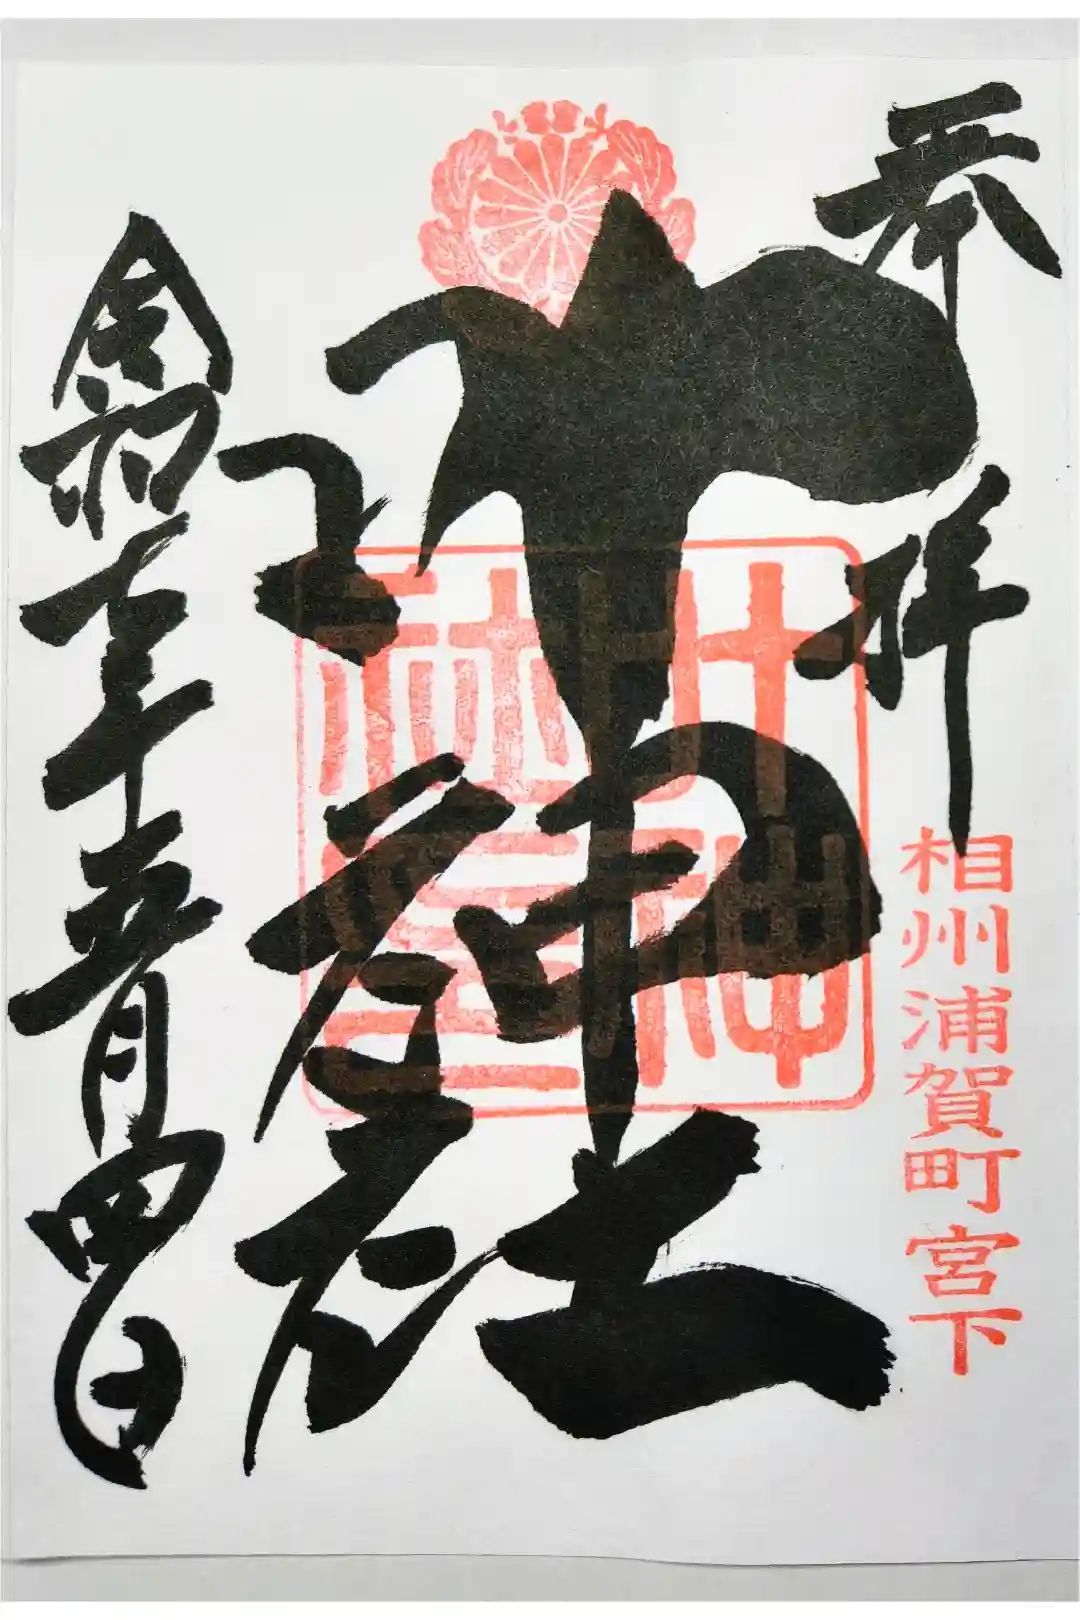 奉拝
相州浦賀町宮下
叶神社
令和年五月四日